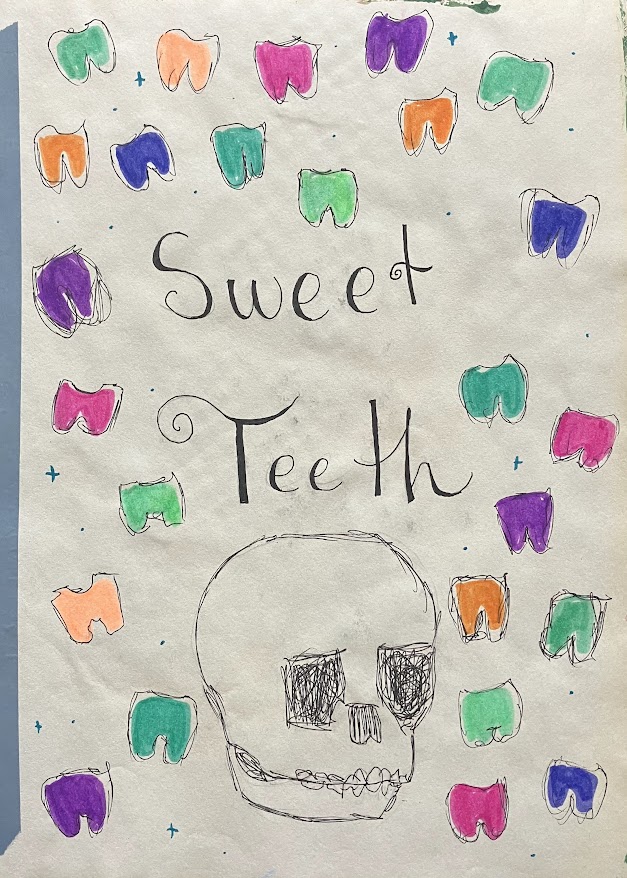 Sweet
Teeth